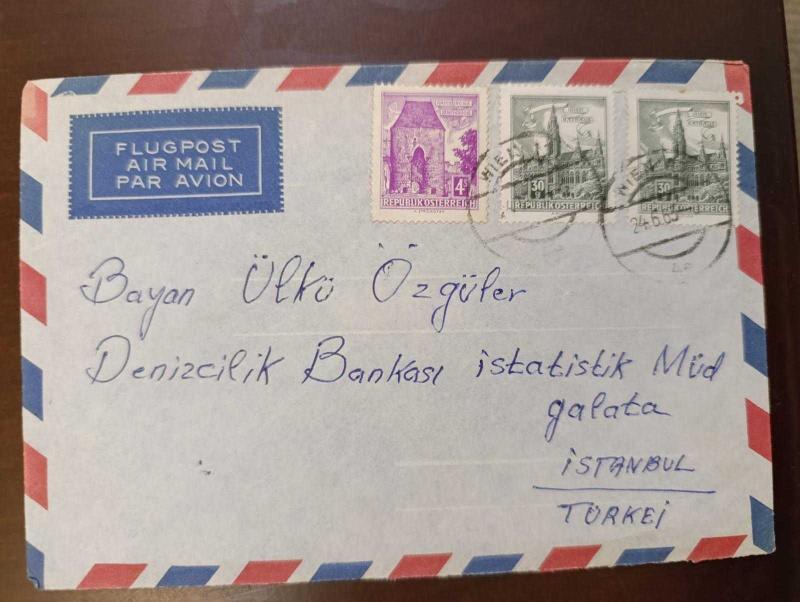 FLUGPOST
AIR MAIL
PAR AVION
4S
REPUBLIK ÖSTERREICH
30
REPUBLIK ÖSTERREICH
30
REPUBLIK ÖSTERREICH
WIEN
WIEN
Bayan Ülkü Özgüler
Denizcilik Bankası istatistik Müd
galata
İSTANBUL
TÜRKEİ